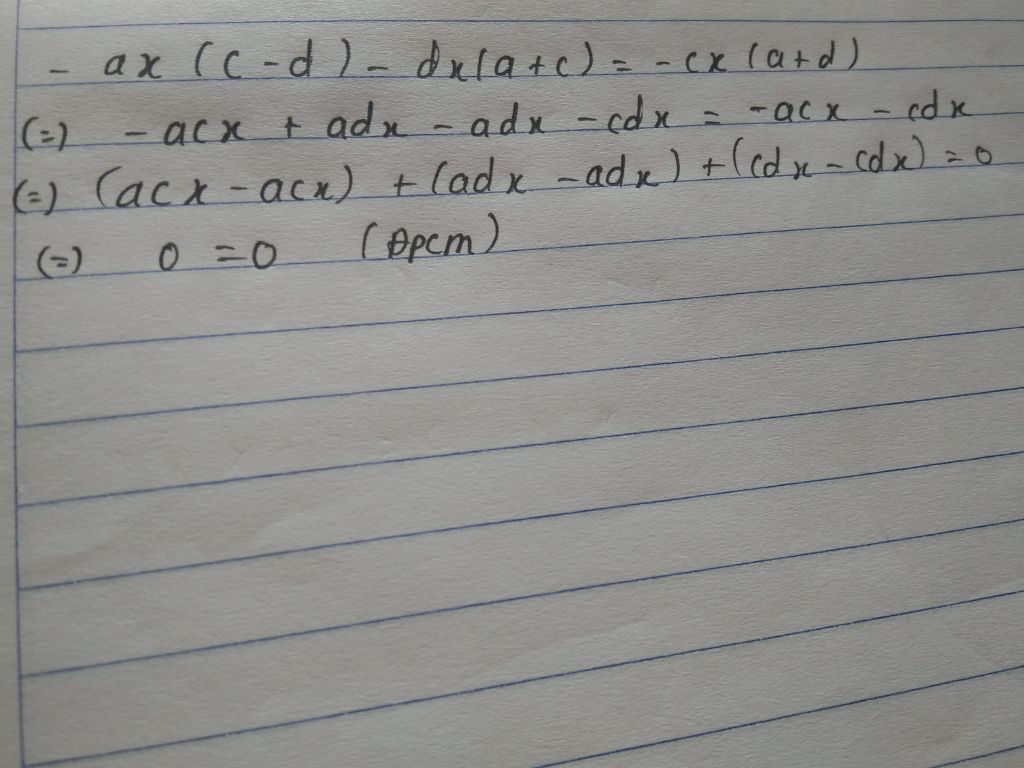 - ax (c-d) - dx(a+c) = -cx (a+d)
(=) -acx + adx - adx - cdx = -acx - cdx
(=) (acx - acx) + (adx - adx) + (cdx - cdx) = 0
(=) 0 = 0 (Đpcm)